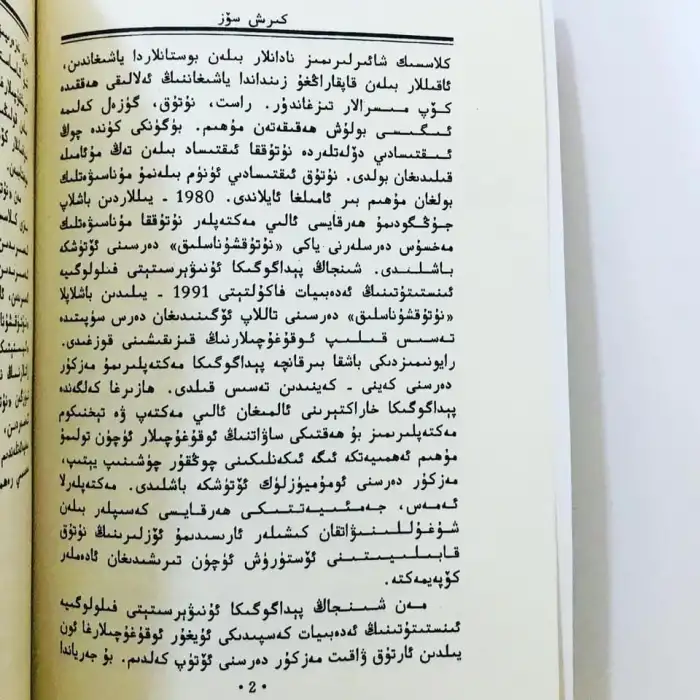 كىرىش سۆز
كلاسسىك شائىرلىرىمىز نادانلار بىلەن بوستانلاردا ياشىغاندىن،
ئاقىللار بىلەن قاپقاراڭغۇ زىنداندا ياشىغاننىڭ ئەلالىقى ھەققىدە
كۆپ مىسرالار تىزغاندۇر. راست، نۇتۇق، گۈزەل كەلىمە
ئىگىسى بولۇش ھەقىقەتەن مۇھىم. بۈگۈنكى كۈندە چوڭ
ئىقتىسادىي دۆلەتلەردە نۇتۇققا ئىقتىساد بىلەن تەڭ مۇئامىلە
قىلىدىغان بولدى. نۇتۇق ئىقتىسادىي ئۈنۈم بىلەنمۇ مۇناسىۋەتلىك
بولغان مۇھىم بىر ئامىلغا ئايلاندى. 1980 - يىللاردىن باشلاپ
جۇڭگودىمۇ ھەرقايسى ئالىي مەكتەپلەر نۇتۇققا مۇناسىۋەتلىك
مەخسۇس دەرسلەرنى ياكى «نۇتۇقشۇناسلىق» دەرسىنى ئۆتۈشكە
باشلىدى. شىنجاڭ پېداگوگىكا ئۇنىۋېرسىتېتى فىلولوگىيە
ئىنستىتۇتىنىڭ ئەدەبىيات فاكۇلتېتى 1991 - يىلىدىن باشلاپلا
«نۇتۇقشۇناسلىق» دەرسىنى تاللاپ ئۆگىنىدىغان دەرس سۈپىتىدە
تەسىس قىلىپ ئوقۇغۇچىلارنىڭ قىزىقىشىنى قوزغىدى.
رايونىمىزدىكى باشقا بىرقانچە پېداگوگىكا مەكتەپلىرىمۇ مەزكۇر
دەرسنى كەينى - كەينىدىن تەسىس قىلدى. ھازىرغا كەلگەندە
پېداگوگىكا خاراكتېرىنى ئالمىغان ئالىي مەكتەپ ۋە تېخنىكوم
مەكتەپلىرىمىز بۇ ھەقتىكى ساۋاتنىڭ ئوقۇغۇچىلار ئۈچۈن تولىمۇ
مۇھىم ئەھمىيەتكە ئىگە ئىكەنلىكىنى چوڭقۇر چۈشىنىپ يېتىپ،
مەزكۇر دەرسنى ئومۇميۈزلۈك ئۆتۈشكە باشلىدى. مەكتەپلەرلا
ئەمەس، جەمئىيەتتىكى ھەرقايسى كەسىپلەر بىلەن
شۇغۇللىنىۋاتقان كىشىلەر ئارىسىدىمۇ ئۆزلىرىنىڭ نۇتۇق
قابىلىيىتىنى ئۆستۈرۈش ئۈچۈن تىرىشىدىغان ئادەملەر
كۆپەيمەكتە.
مەن شىنجاڭ پېداگوگىكا ئۇنىۋېرسىتېتى فىلولوگىيە
ئىنستىتۇتىنىڭ ئەدەبىيات كەسپىدىكى ئۇيغۇر ئوقۇغۇچىلارغا ئون
يىلدىن ئارتۇق ۋاقىت مەزكۇر دەرسنى ئۆتۈپ كەلدىم. بۇ جەرياندا
• 2 •